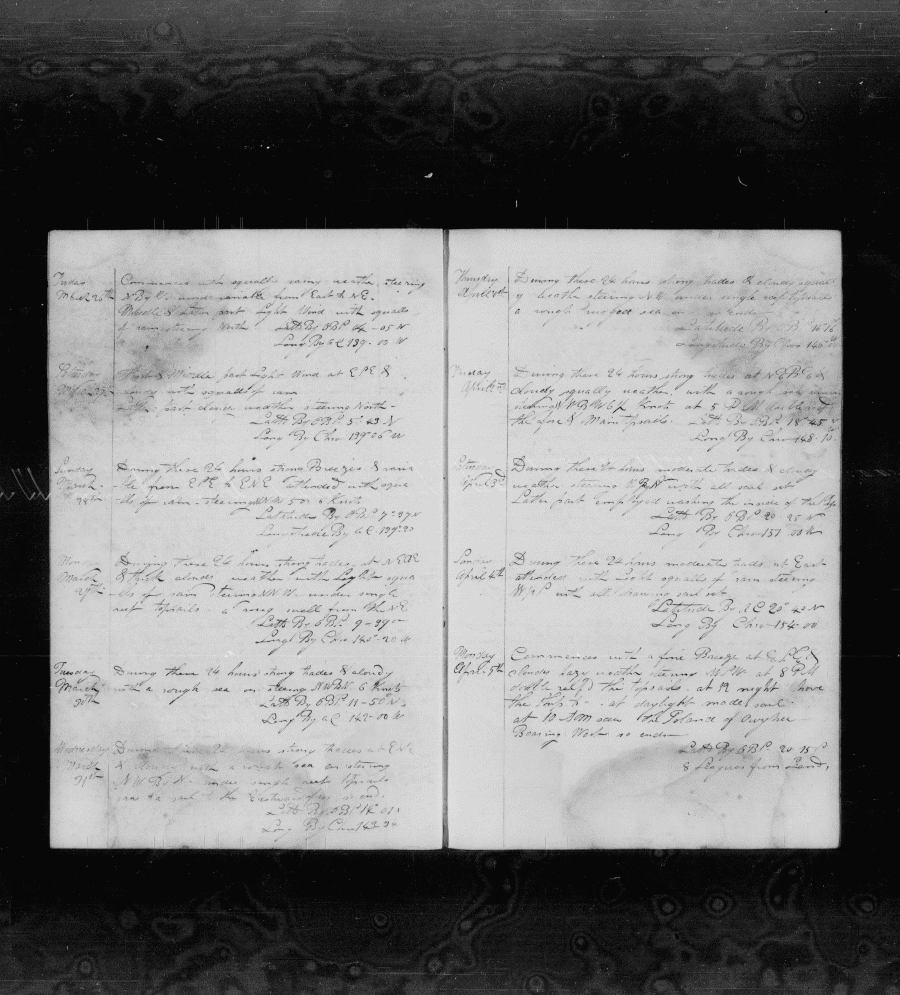 Friday
March 26th
Commences with squally rainy weather, steering
N By W. wind variable from East to N.E.
Middle & Latter part Light Wind with squalls
of rain steering North Latt By OBs 4-05 N
Long By a C 139-00 W
Saturday
March 27th
First & Middle part Light Wind at E.N.E &
cloudy with squalls of rain
Latter part cloudy weather steering North-
Latt By OBs 5-43 N
Long By Chro 139 06 W
Sunday
March
28th
During these 24 hours strong Breezes & varia
ble from ENE to E.N.E attended with squa
lls of rain. steering N.W 5 or 6 Knots
Latitude By OBs 7-27 N
Longitude By a C 139-20
Mon
March
29th
During these 24 hours strong trades, at N.E.
& thick cloudy weather with Light squa
lls of rain steering NNW. under single
reef topsails. a rong swell from the N E
Latt By OBs 9-39
Long By Chro 140-20 W
Tuesday
March
30th
During these 24 hours strong trades & cloudy
with a rough sea on steering N W By N 6 Knots
Latt By OBs 11-50 N
Long By a C 142-00 W
Wednesday
March
31st
During these 24 hours strong trades at E N E
& cloudy with a rough sea on steering
N.W. By N. under single reef topsails
saw a sail to the Eastward so ends.
Latt By OBs 14 01
Long By Chro 143 24
Thursday
April 1st
During these 24 hours strong trades & cloudy squal
y weather steering N.W. under single reef topsails
a rough rugged sea on so ends
Latitude By OBs 16 16
Longitude By Chro 146
Friday
April 2d
During these 24 hours strong trades at N.E. &
cloudy squally weather. with a rough sea
steering N W By W 6½ Knots at 5 P M doubled
the fore & Main topsails. Latt By OBs 18-45 N
Long By Chro 148-10
Saturday
April 3d
During these 24 hours moderate trades & cloudy
weather steering W By N with all sail set
Latter part employed washing the inside of the
Latt By OBs 20 25 N
Long By Chro 151 00 W
Sunday
April 4th
During these 24 hours moderate trades at East
attended with Light squalls of rain steering
with all drawing sail set
Latitude By a C 20 20 N
Long By Chro 154-00
Monday
April 5th
Commences with a fine Breeze at &
cloudy hazy weather steering at 8 P.M
double reefd the topsails. at 12 night hove
the Ship to - at daylight made sail
at 10 A M saw the Island of Owyhee
Bearing West so ends
Latt By OBs 20 15
8 Leagues from Land,